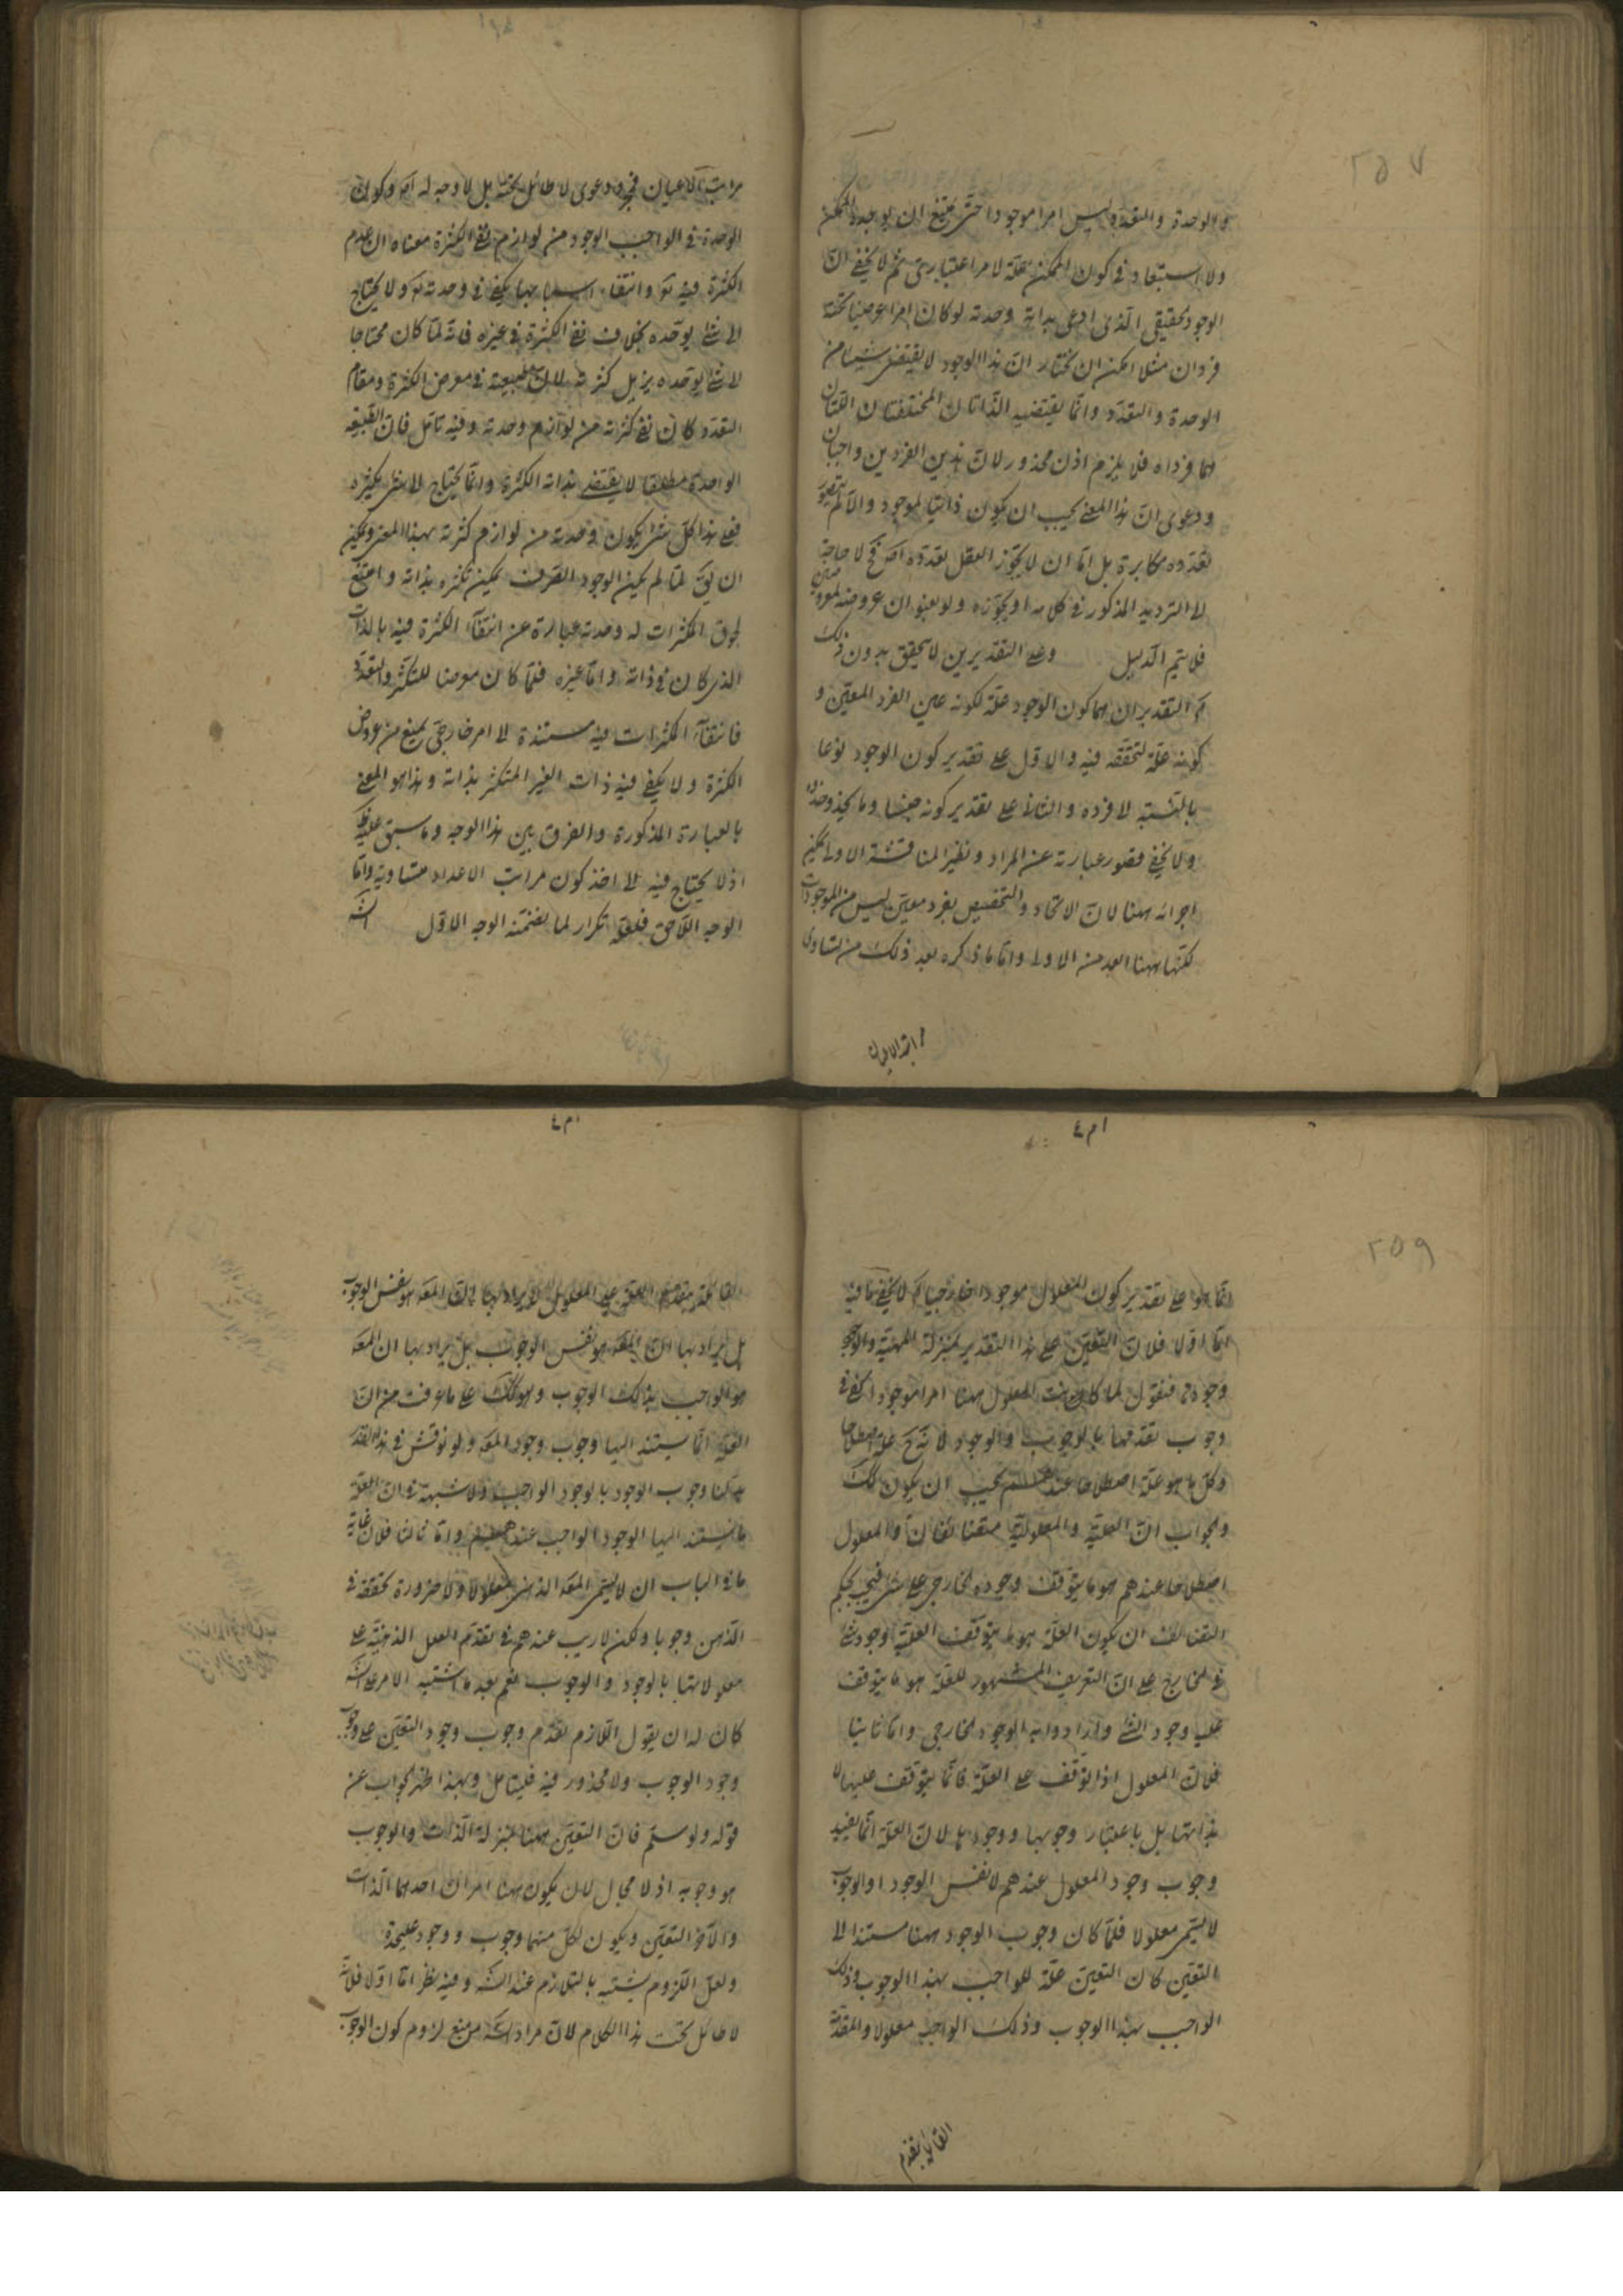 ٢٥٧
والوحدة والتعدد ليس امرا موجودا حتى يمتنع ان يوجده الممكن
ولا استبعاد في كون الممكن علة لامر اعتبارى ثم لا يخفى ان
الوجود الحقيقى الذى ادعى بداهة وحدته لو كان امرا عرضيا تحته
فردان مثلا امكن ان يختار ان هذا الوجود لا يقتضى شيئا من
الوحدة والتعدد وانما يقتضيه الذاتان المختلفتان اللتان
هما فرداه فلا يلزم اذن محذور لان هذين الفردين واجبان
ودعوى ان هذا المعنى يجب ان يكون ذاتيا لموجود والا لم يتصور
تعدده مكابرة بل اما ان لا يجوز العقل تعدده اصلا فح لا حاجة
الى الترديد المذكور في كلامه او يجوزه ولو بعنوان عروضه لمعروضين
فلا يتم الدليل وعلى التقديرين لا يتحقق بدون ذلك
التقديران هما كون الوجود علة لكونه عين الفرد المعين و
كونه علة لتحققه فيه والاول على تقدير كون الوجود نوعا
بالنسبة الى فرده والثانى على تقدير كونه جنسا وما يحذو حذوه
ولا يخفى قصور عبارته عن المراد ونظير المناقشة الاولى يمكن
اجرائه ههنا لان الاتحاد والتخصيص بفرد معين ليس من الموجودات
لكنها ههنا ابعد من الاولى واما ما ذكره بعد ذلك من تساوى
مراتب الاعيان
مراتب الاعيان فهو دعوى لا طائل تحته بل لا وجه له اصلا وكون
الوحدة في الواجب الوجود من لوازم نفى الكثرة معناه ان عدم
الكثرة فيه تع وانتفاء اسبابها يكفى في وحدته تع ولا يحتاج
الى شئ يوحده بخلاف نفى الكثرة في غيره فانه لما كان محتاجا
الى شئ يوحده يزيل كثرته لان الطبيعة في معرض الكثرة ومقام
التعدد كان نفى كثرته من لوازم وحدته وفيه تامل فان الطبيعة
الواحدة مطلقا لا يقتضى بذاته الكثرة وانما يحتاج الى شئ يكثره
فعلى هذا كل شئ يكون وحدته من لوازم كثرته بهذا المعنى ويمكن
ان يق لما لم يكن الوجود الصرف يمكن تكثره بذاته وامتنع
لحوق المكثرات له وحدته عبارة عن انتفاء الكثرة فيه بالذات
الذى كان في ذاته واما غيره فلما كان معرضا للتكثر والتعدد
فانتفاء الكثرات فيه مستندة الى امر خارجى يمنع من عروض
الكثرة ولا يكفى فيه ذات الغير المتكثر بذاته وهذا هو المعنى
بالعبارة المذكورة والفرق بين هذا الوجه وما سبق عليه
اذ لا يحتاج فيه الى اخذ كون مراتب الاعداد متساوية واما
الوجه اللاحق فلعله تكرار لما تضمنه الوجه الاول
٤م١
٤م١
٢٥٩
انما هو على تقدير كون المعلول موجودا خارجيا كما لا يخفى ما فيه
اما اولا فلان التعين على هذا التقدير بمنزلة المهية والوجوب
وجوده فنقول لما كانت المعلول ههنا امرا موجودا كفى في
وجوب تقدمها بالوجوب والوجود لانه ح علة اصطلاحا
وكل ما هو علة اصطلاحا عندهم يجب ان يكون كك
والجواب ان العلية والمعلولية متضائفان والمعلول
اصطلاحا عندهم هو ما يتوقف وجوده الخارجى على شئ فيحكم
التضائف ان يكون العلة هو ما يتوقف العلية وجود شئ
في الخارج على ان التعريف المشهور للعلة هو ما يتوقف
عليه وجود الشئ وارادوا به الوجود الخارجى واما ثانيا
فلان المعلول اذا توقف على العلة فانما يتوقف عليها لا
بذاتها بل باعتبار وجوبها ووجودها لان العلة انما يفيد
وجوب وجود المعلول عندهم لا نفس الوجود او الوجوب
لا يسمى معلولا فلما كان وجوب الوجود ههنا مستندا الى
التعين كان التعين علة للواجب بهذا الوجوب وذلك
الواجب بهذا الوجوب وذلك الواجب معلولا والمقدمة
القائلة بتقدم
القائلة بتقدم العلة على المعلول لا يراد بها ان المعه هو نفس الوجوب
بل يراد بها ان المعه هو نفس الوجوب بل يراد بها ان المعه
هو الواجب بذلك الوجوب وهو كك على ما عرفت من ان
العلة انما يستند اليها وجوب وجود المعه ولو نوقش في هذا القدر
بدلنا وجوب الوجود بالوجود الواجب ولا شبهة في ان العلة
ما يستند اليها الوجود الواجب عندهم واما ثالثا فلان غاية
ما في الباب ان لا يسمى المعه الذهنى معلولا ولا ضرورة تحققه في
الذهن وجوبا ولكن لا ريب عندهم في تقدم العلل الذهنية على
معلولاتها بالوجود والوجوب نعم بعد ما اشتبه الامر على
كان له ان يقول اللازم تقدم وجوب وجود التعين على وجوب
وجود الوجوب ولا محذور فيه فليتامل وبهذا ظهر الجواب عن
قوله ولو سلم فان التعين ههنا بمنزلة الذات والوجوب
هو وجوبه اذ لا مجال لان يكون ههنا امران احدهما الذات
والاخر التعين ويكون لكل منهما وجوب ووجود عليحدة
ولعل اللزوم يشتبه بالتلازم عند الش وفيه نظر اما اولا فلانه
لا طائل تحت هذا الكلام لان مراد الش من منع لزوم كون الوجوب